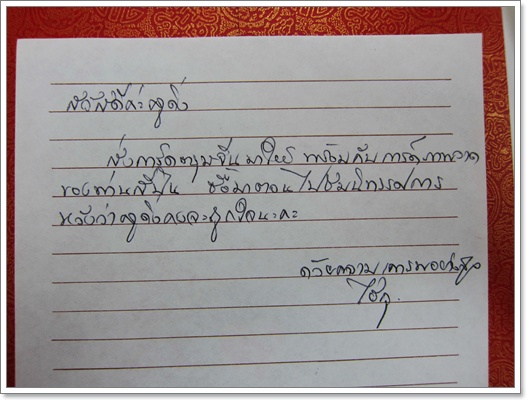 สวัสดีค่ะครูดิ่ง
ส่งการ์ดตรุษจีนมาให้ พร้อมกับการ์ดภาพวาด
ของท่านสีไน ซื้อมาตอนไปชมนิทรรศการ
หวังว่าครูดิ่งคงจะถูกใจนะคะ
ด้วยความเคารพอย่างสูง